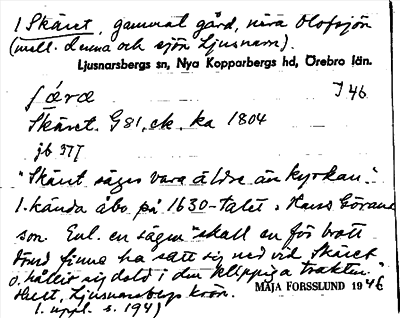 1 Skäret, gammal gård, nära Olofsjön
(mell. denna och sjön Ljusnarn).
Ljusnarsbergs sn, Nya Kopparbergs hd, Örebro län.
J 46
Skäret. G 81, ek. ka 1804
jb 377
"Skäret säges vara äldre än kyrkan."
1. kända åbo på 1630-talet, Hans Görans
son. Enl. en sägen "skall en för brott
finne ha satt sig ned vid Skäret
o. håller sig dold i den klippiga trakten"
Hist, Ljusnarsbergs krön.
MAJA FORSSLUND 1946
1. uppl. s. 194)